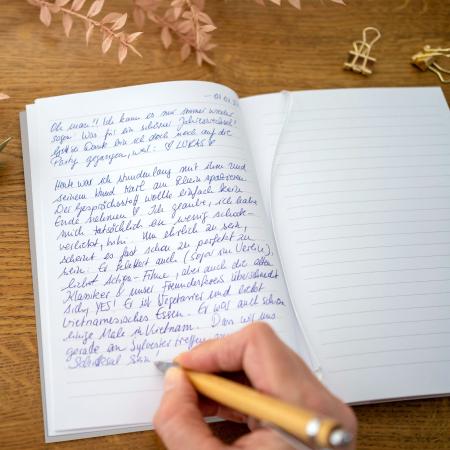 — 01.01.
Oh man!! Ich kann es nur immer wieder
sagen: Was für ein schöner Jahreswechsel!
Gott sei Dank bin ich doch noch auf die
Party gegangen, weil: ♡ LUKAS ♡
Heute war ich stundenlang mit ihm und
seinem Hund Karl am Rhein spazieren.
Der Gesprächsstoff wollte einfach kein
Ende nehmen ♡ Ich glaube, ich habe
mich tatsächlich ein wenig schock-
verliebt, hihi. Um ehrlich zu sein,
scheint es fast schon zu perfekt zu
sein: Er klettert auch (sogar im Verein),
liebt Action-Filme, aber auch die alten
Klassiker & unser Freundeskreis überschneidet
sich, YES! Er ist Vegetarier und liebt
vietnamesisches Essen. Er war auch schon
einige Male in Vietnam. Dass wir uns
gerade an Silvester treffen
Schicksal sein